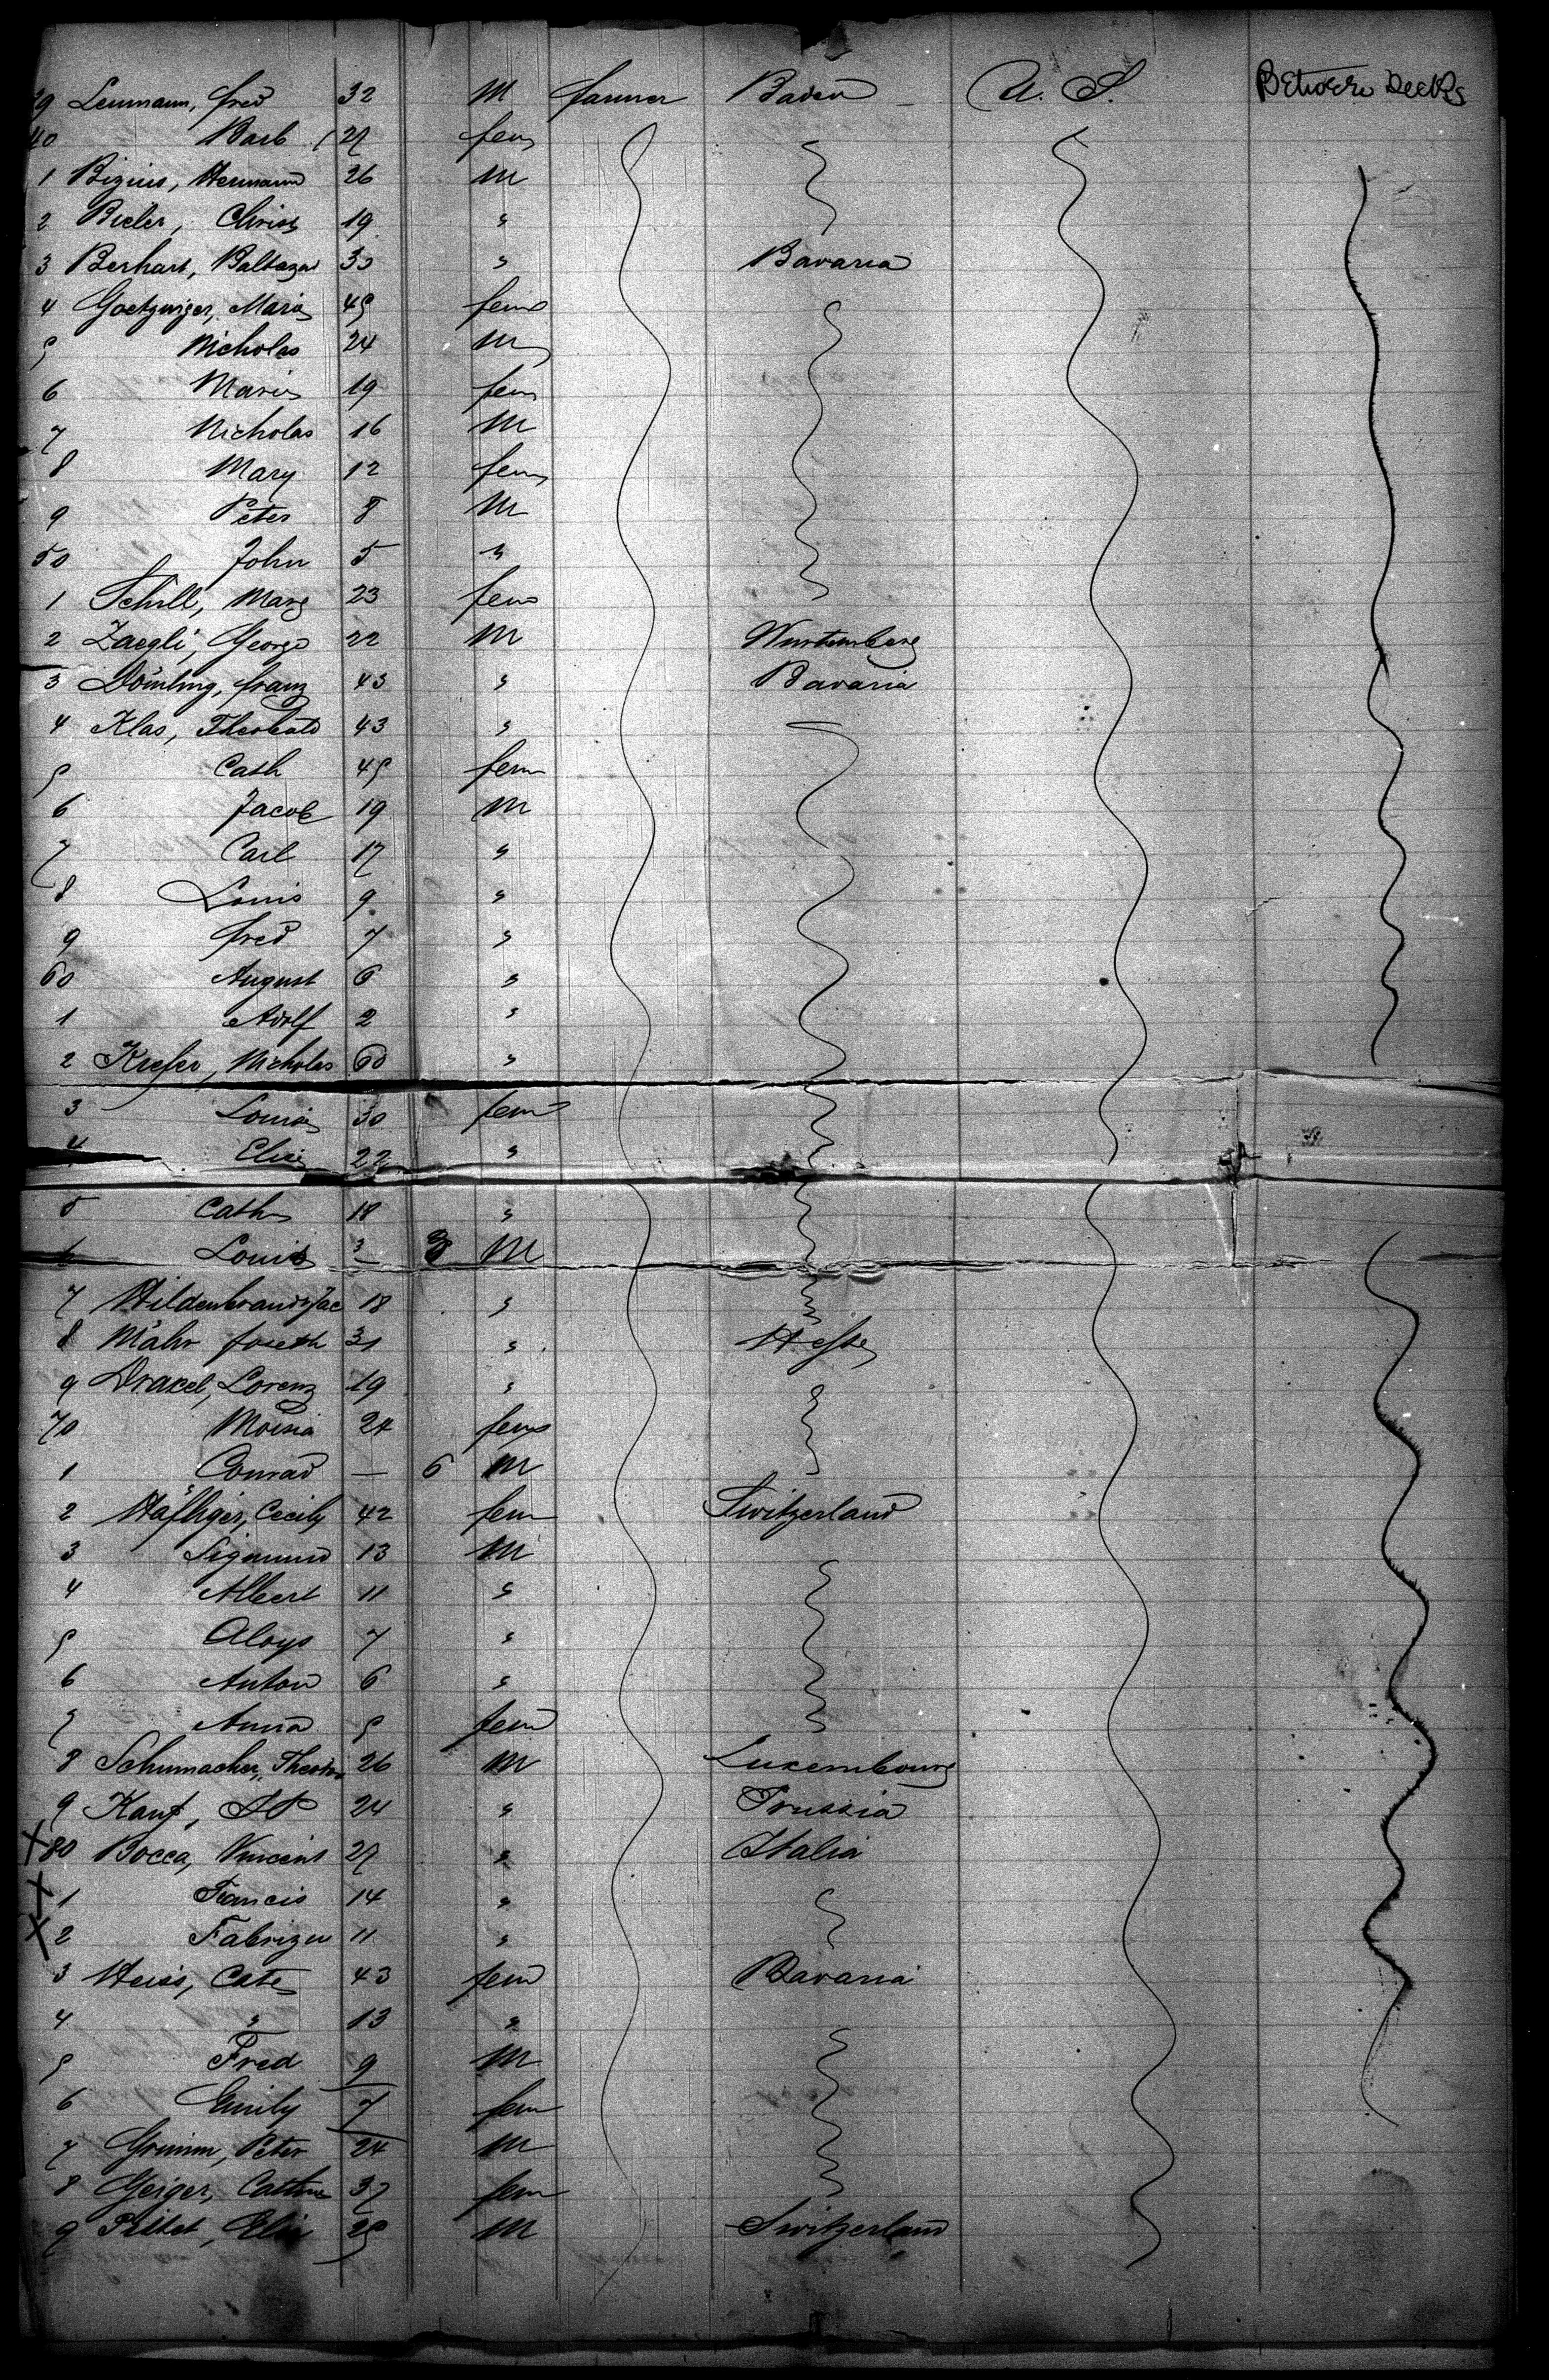 39 Leumann, fred 32 M farmer Baden U. S. Between Decks
40 Barb 27 fem
1 Bizius, Hermann 26 M
2 Bieler, Christ 19 "
3 Berhart, Baltazar 33 " Bavaria
4 Goetzinger, Maria 45 fem
5 Nicholas 24 M
6 Maria 19 fem
7 Nicholas 16 M
8 Mary 12 fem
9 Peter 8 M
50 John 5 "
1 Schill, Marg 23 fem
2 Zaegli, George 22 M Wurtemberg
3 Dömling, franz 43 " Bavaria
4 Klas, Theobald 43 "
5 Cath 45 fem
6 Jacob 19 M
7 Carl 17 "
8 Louis 9 "
9 fred 7 "
60 August 6 "
1 Adolf 2 "
2 Kiefer, Nicholas 60 "
3 Louisa 30 fem
4 Elise 22 "
5 Cath 18 "
6 Louis 3 M
7 Hildenbrand, Jac 18 "
8 Mähr Joseth 31 " Hesse
9 Drakel, Lorenz 19 "
70 24 fem
1 Conrad — 6 M
2 Häfliger, Cecily 42 fem Switzerland
3 Sigmund 13 M
4 Albert 11 "
5 Aloys 7 "
6 Anton 6 "
7 Anna 5 fem
8 Schumacher, Theodor 26 M Luxembourg
9 Kauf, 24 " Prussia
X 80 Bocca, Vincent 27 " Italia
X 1 Francis 14 "
X 2 Fabrizio 11 "
3 Heiss, Cate 43 fem Bavaria
4 " 13 "
5 Fred 9 M
6 Emily 7 fem
7 Grimm, Peter 24 M
8 Geiger, Cathne 37 fem
9 Pittet, Elie 25 M Switzerland